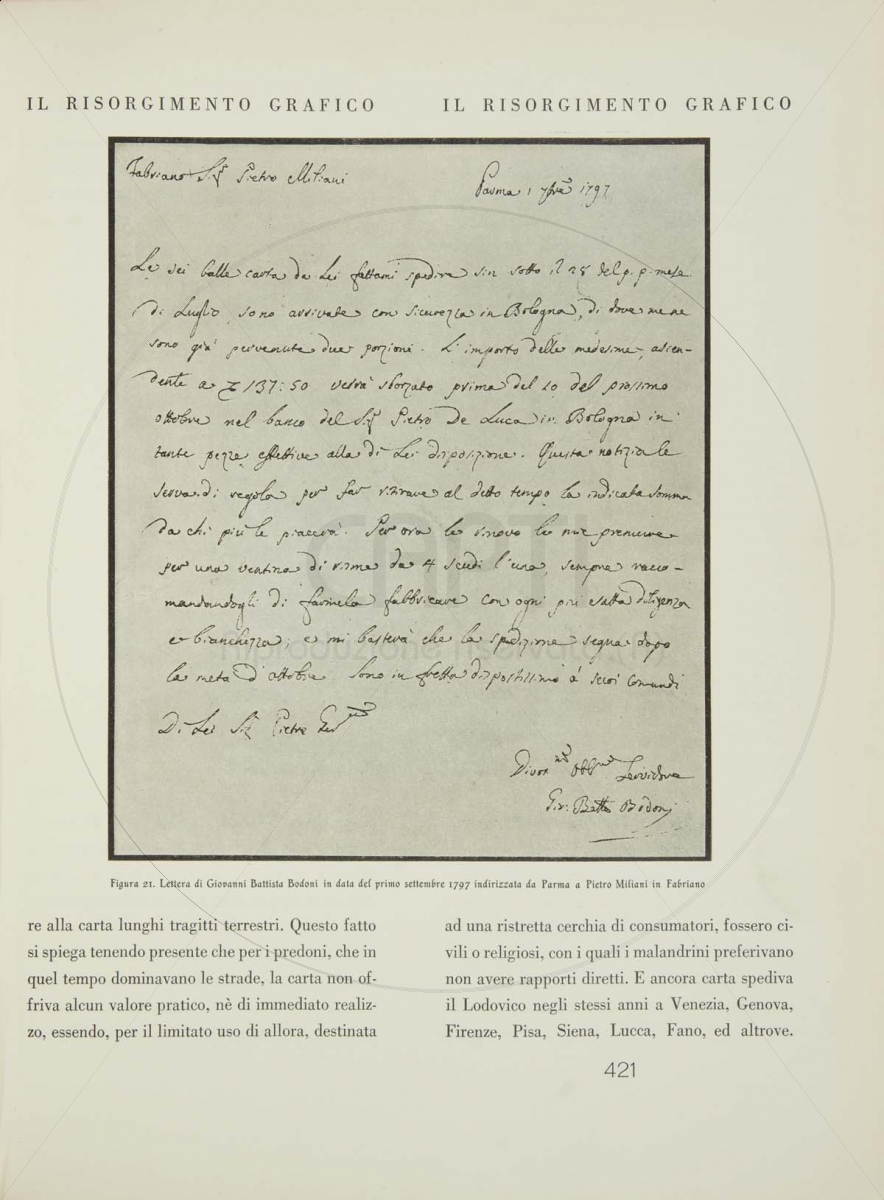 IL RISORGIMENTO GRAFICO IL RISORGIMENTO GRAFICO
Fabriano Sig.r Pietro Miliani
Parma 1 7bre 1797
Le sei balle carta da Lei fattami spedire sin sotto il 28 del p. p. mese
di Luglio sono arrivate con sicurezza in Bologna, di dove me ne
sono già pervenute due porzioni. L'importo delle medesime, ascen-
dente a 137:50 verrà sborzato prima del 10 del prossimo
ottobre nel banco del Sig.r Pietro De Luca in Bologna in
tante pezze effettive alla di Lei disposizione. Questa notizia le
serva di regola per far ritirare al detto tempo la indicata somma
da chi più le piacerà. Per ora le rinovo le mie premure
per una ventina di risma da 4 scudi l'una, sempre racco-
mandandogli di farmela fabbricare con ogni più esatta diligenza
e bianchezza; e mi basterà che la spedizione segua dopo
la metà d'ottobre. Sono in fretta dispostissimo a' suoi comandi
Di Lei Sig.r Pietro
Divot.mo Obb.mo Servidore
Gio. Batta Bodoni
Figura 21. Lettera di Giovanni Battista Bodoni in data del primo settembre 1797 indirizzata da Parma a Pietro Miliani in Fabriano
re alla carta lunghi tragitti terrestri. Questo fatto
si spiega tenendo presente che per i predoni, che in
quel tempo dominavano le strade, la carta non of-
friva alcun valore pratico, nè di immediato realiz-
zo, essendo, per il limitato uso di allora, destinata
ad una ristretta cerchia di consumatori, fossero ci-
vili o religiosi, con i quali i malandrini preferivano
non avere rapporti diretti. E ancora carta spediva
il Lodovico negli stessi anni a Venezia, Genova,
Firenze, Pisa, Siena, Lucca, Fano, ed altrove.
421